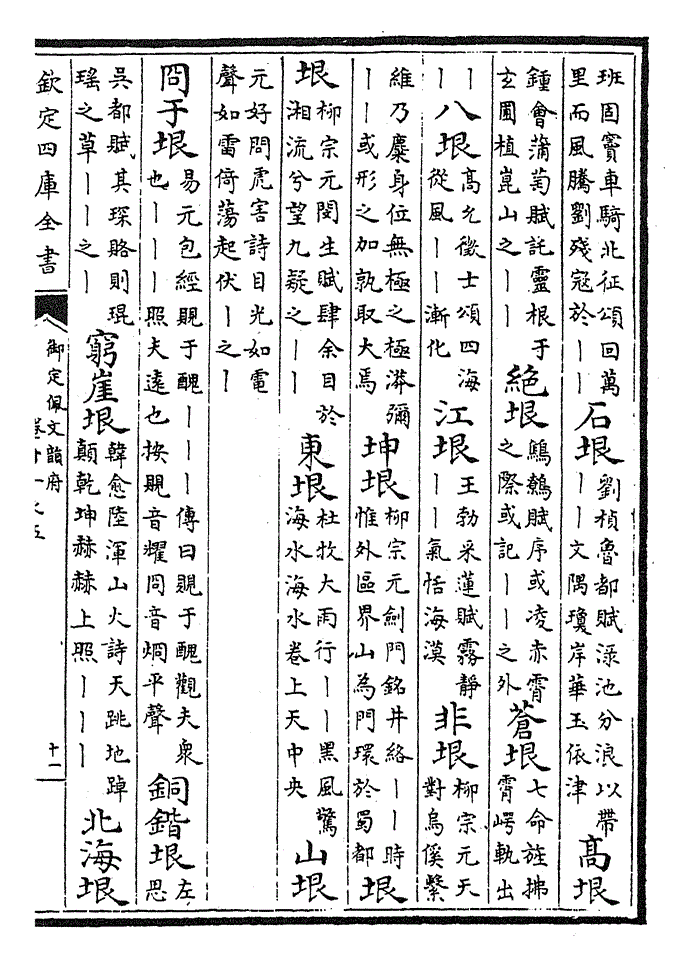 班固竇車騎北征頌回萬
里而風騰劉殘寇於||
石垠
劉楨魯都賦淥池分浪以帶
||文隅瓊岸華玉依津
高垠
鍾會蒲萄賦託靈根于
玄圃植崑山之||
絶垠
鷦鷯賦序或凌赤霄
之際或託||之外
蒼垠
七命旌拂
霄崿軌出
||
八垠
高允徵士頌四海
從風||漸化
江垠
王勃采蓮賦霧靜
||氣恬海漠
非垠
柳宗元天
對烏徯繫
維乃麋身位無極之極漭瀰
||或形之加孰取大焉
坤垠
柳宗元劍門銘井絡||時
惟外區界山為門環於蜀都
垠
垠
柳宗元閔生賦肆余目於
湘流兮望九疑之||
東垠
杜牧大雨行||黑風驚
海水海水卷上天中央
山垠
元好問虎害詩目光如電
聲如雷倚蕩起伏|之|
冏于垠
易元包經䚀于醜|||傳曰䚀于醜觀夫衆
也|||照夫遠也按䚀音耀冏音烱平聲
銅鍇垠
左
思
吳都賦其琛賂則琨
瑶之草||之|
窮崖垠
韓愈陸渾山火詩天跳地踔
顛乾坤赫赫上照|||
北海垠
欽定四庫全書
御定佩文韻府
卷十一之五
十一